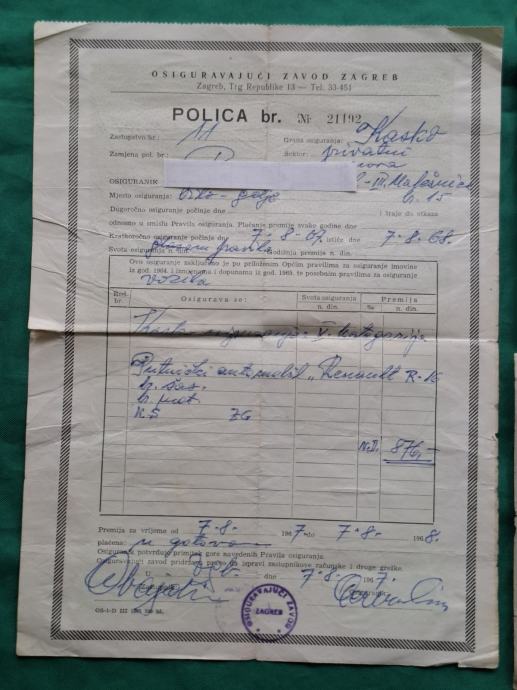 OSIGURAVAJUĆI ZAVOD ZAGREB
Zagreb, Trg Republike 13 — Tel. 33-451
POLICA br. № 21192
Zastupstvo br.: 11 Grana osiguranja: Kasko
Zamjena pol. br.: Sektor: privatni
OSIGURANIK
Mjesto osiguranja: br. 15
Dugoročno osiguranje počinje dne i traje do otkaza
odnosno u smislu Pravila osiguranja. Plaćanje premije svake godine dne
Kratkoročno osiguranje počinje dne 7-8-67. ističe dne 7-8-68.
Svota osiguranja n. din. Godišnja premija n. din.
Ovo osiguranje zaključeno je po priloženim Općim pravilima za osiguranje imovine
iz god. 1964. i izmjenama i dopunama iz god. 1965. te posebnim pravilima za osiguranje
vozila
Red. br. Osigurava se: Svota osiguranja n. din. ‰ Premija n. din.
Kasko osiguranje V. kategorija
Putnički automobil „Renault R-16
br. šas.
br. mot.
KŠ ZG
N.D. 876,-
Premija za vrijeme od 7-8- 1967 do 7-8- 1968.
plaćena: u gotovo
Osiguranik potvrđuje primitak gore navedenih Pravila osiguranja.
Osiguravajući zavod pridržaje pravo da ispravi zastupnikove računske i druge greške.
U dne 7-8- 1967.
OSIGURAVAJUĆI ZAVOD
ZAGREB